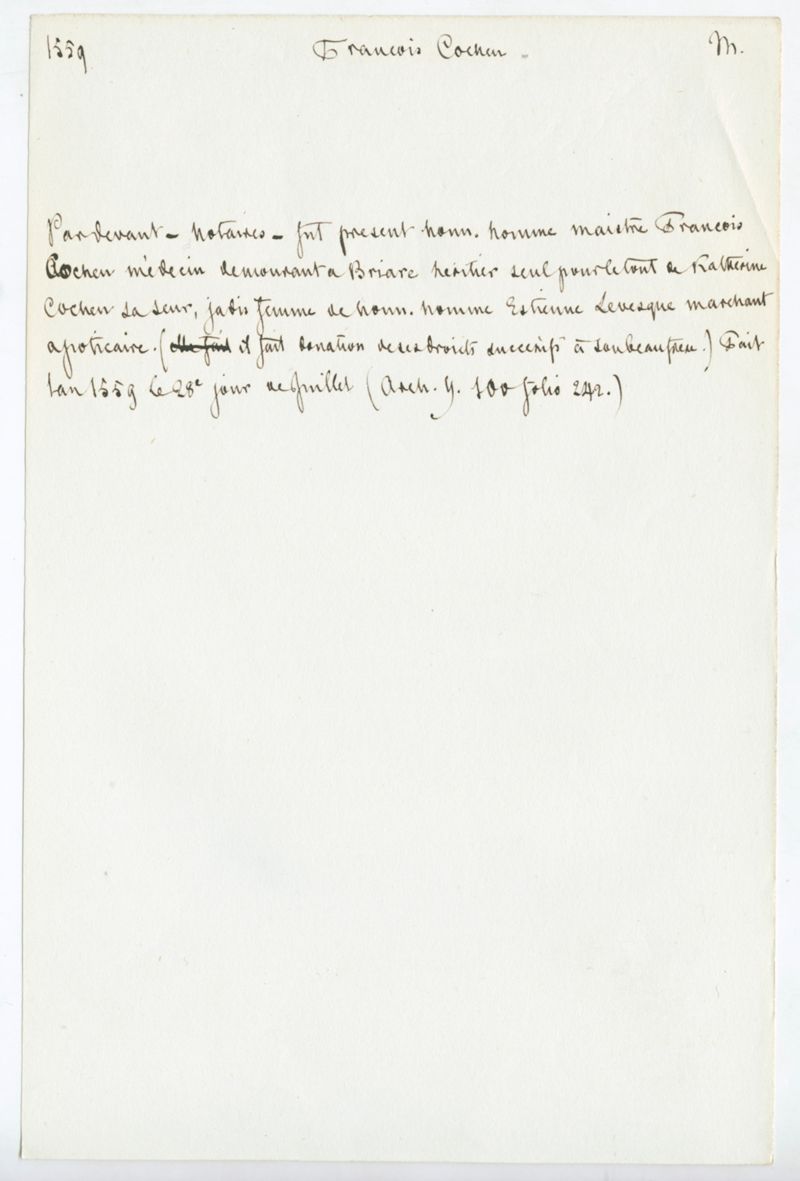 1559 Francois Cochen - M.
Pardevant - Notaires - fut present honn. homme maistre Francois
Cochen médecin demourant a Briare heritier seul pour le tout de Katherine
Cochen sa seur, jadis femme de honn. homme Estienne Levesque marchant
apoticaire. (elle fait il fait donation de ses droicts successifs à son beau frere.) Fait
lan 1559 le 28e jour de Juillet (Arch. Y. 100 folio 242.)